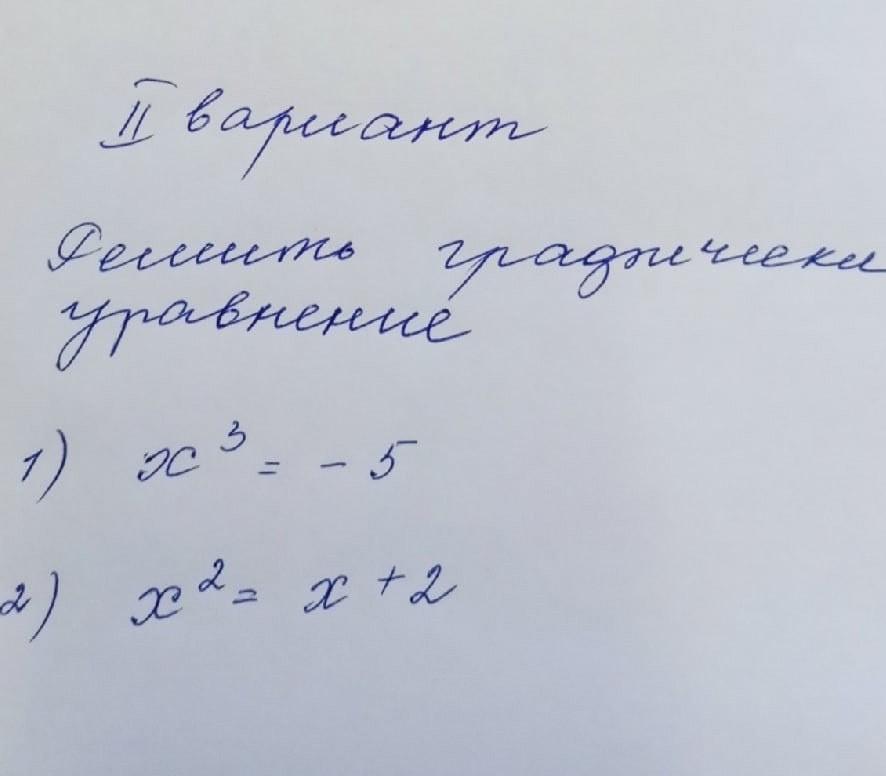 II вариант
Решить графически
уравнение
1) x³ = - 5
2) x² = x + 2